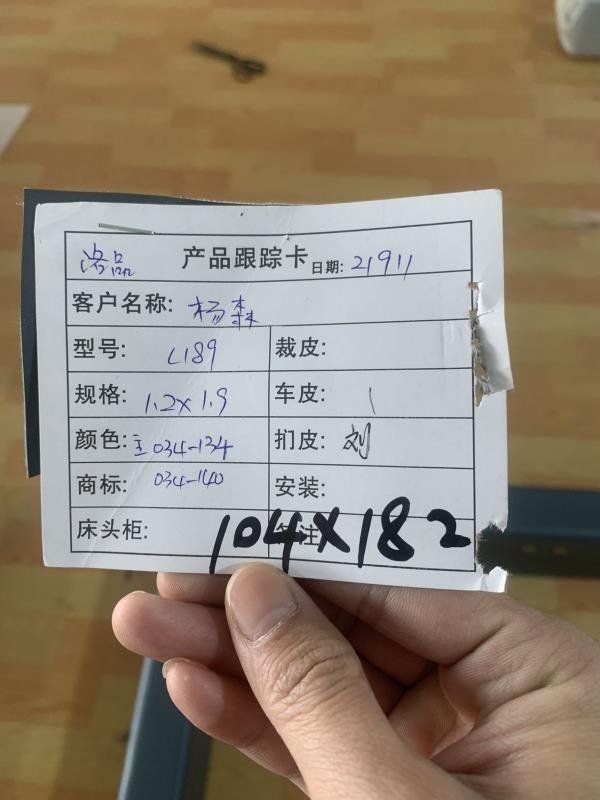 洛品 产品跟踪卡 日期: 21911
客户名称: 杨森
型号: L189 裁皮:
规格: 1.2×1.9 车皮:
颜色: 主034-134 扪皮: 刘
商标: 034-140 安装:
床头柜: 备注
104×182